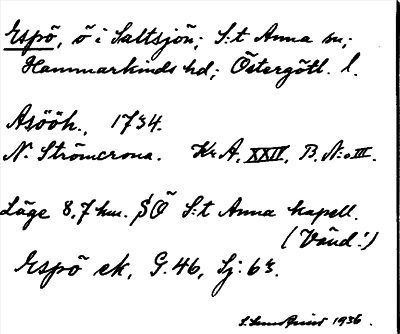 Espö, ö i Saltsjön; S:t Anna sn;
Hammarkinds hd; Östergötl. l.
Asööh., 1734.
N. Strömcrona. Kr A, XXII, B, N:o III.
Läge 8,7 km. SÖ S:t Anna kapell.
(Vänd!)
Espö ek, G. 46, Sj: 63.
1936.